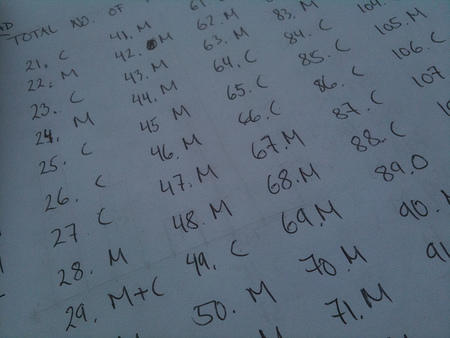 TOTAL NO. OF
21. C
22. M
23. C
24. M
25. C
26. C
27. C
28. M
29. M+C
41. M
42. M
43. M
44. M
45 M
46. M
47. M
48. M
49. C
50. M
62. M
63. M
64. C
65. C
66. C
67. M
68. M
69. M
70. M
71. M
83. M
84. C
85. C
86. C
87. C
88. C
89. O
90.
91
104.
105. M
106. C
107